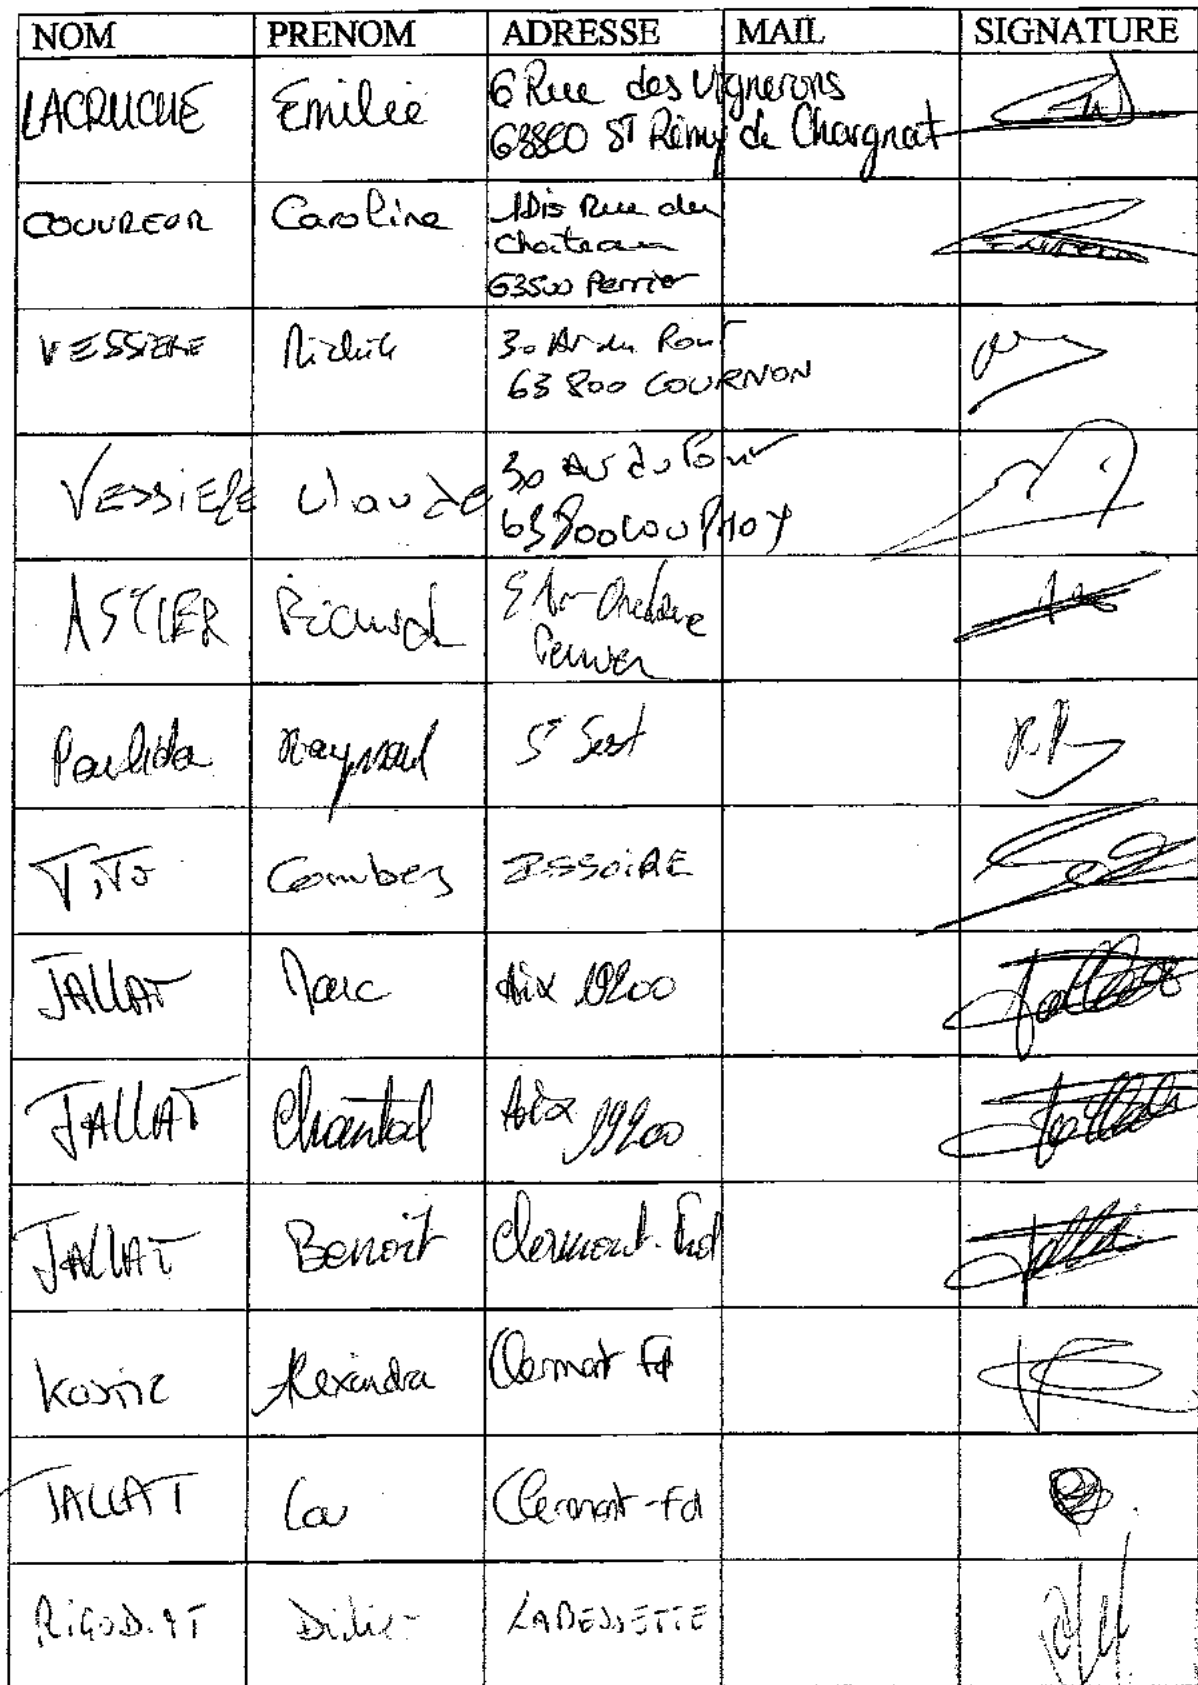 NOM PRENOM ADRESSE MAIL SIGNATURE
LACRUCHE Emilie 6 Rue des Vignerons
63500 ST Rémy de Chargnat
COUVREUR Caroline 1bis Rue du
Chateau
63500 Perrier
VESSIERE Michèle 30 Av du Pont
63 800 COURNON
VESSIERE Claude 30 Av du Pont
63800
ASTIER Richard
Raymond
TiTo Combes ISSOIRE
JALLAT Marc Aix 19200
JALLAT Chantal Aix 19200
JALLAT Benoit Clermont-Fd
Alexandra Clermont Fd
JALLAT Lou Clermont-Fd
Didier LABESSETTE